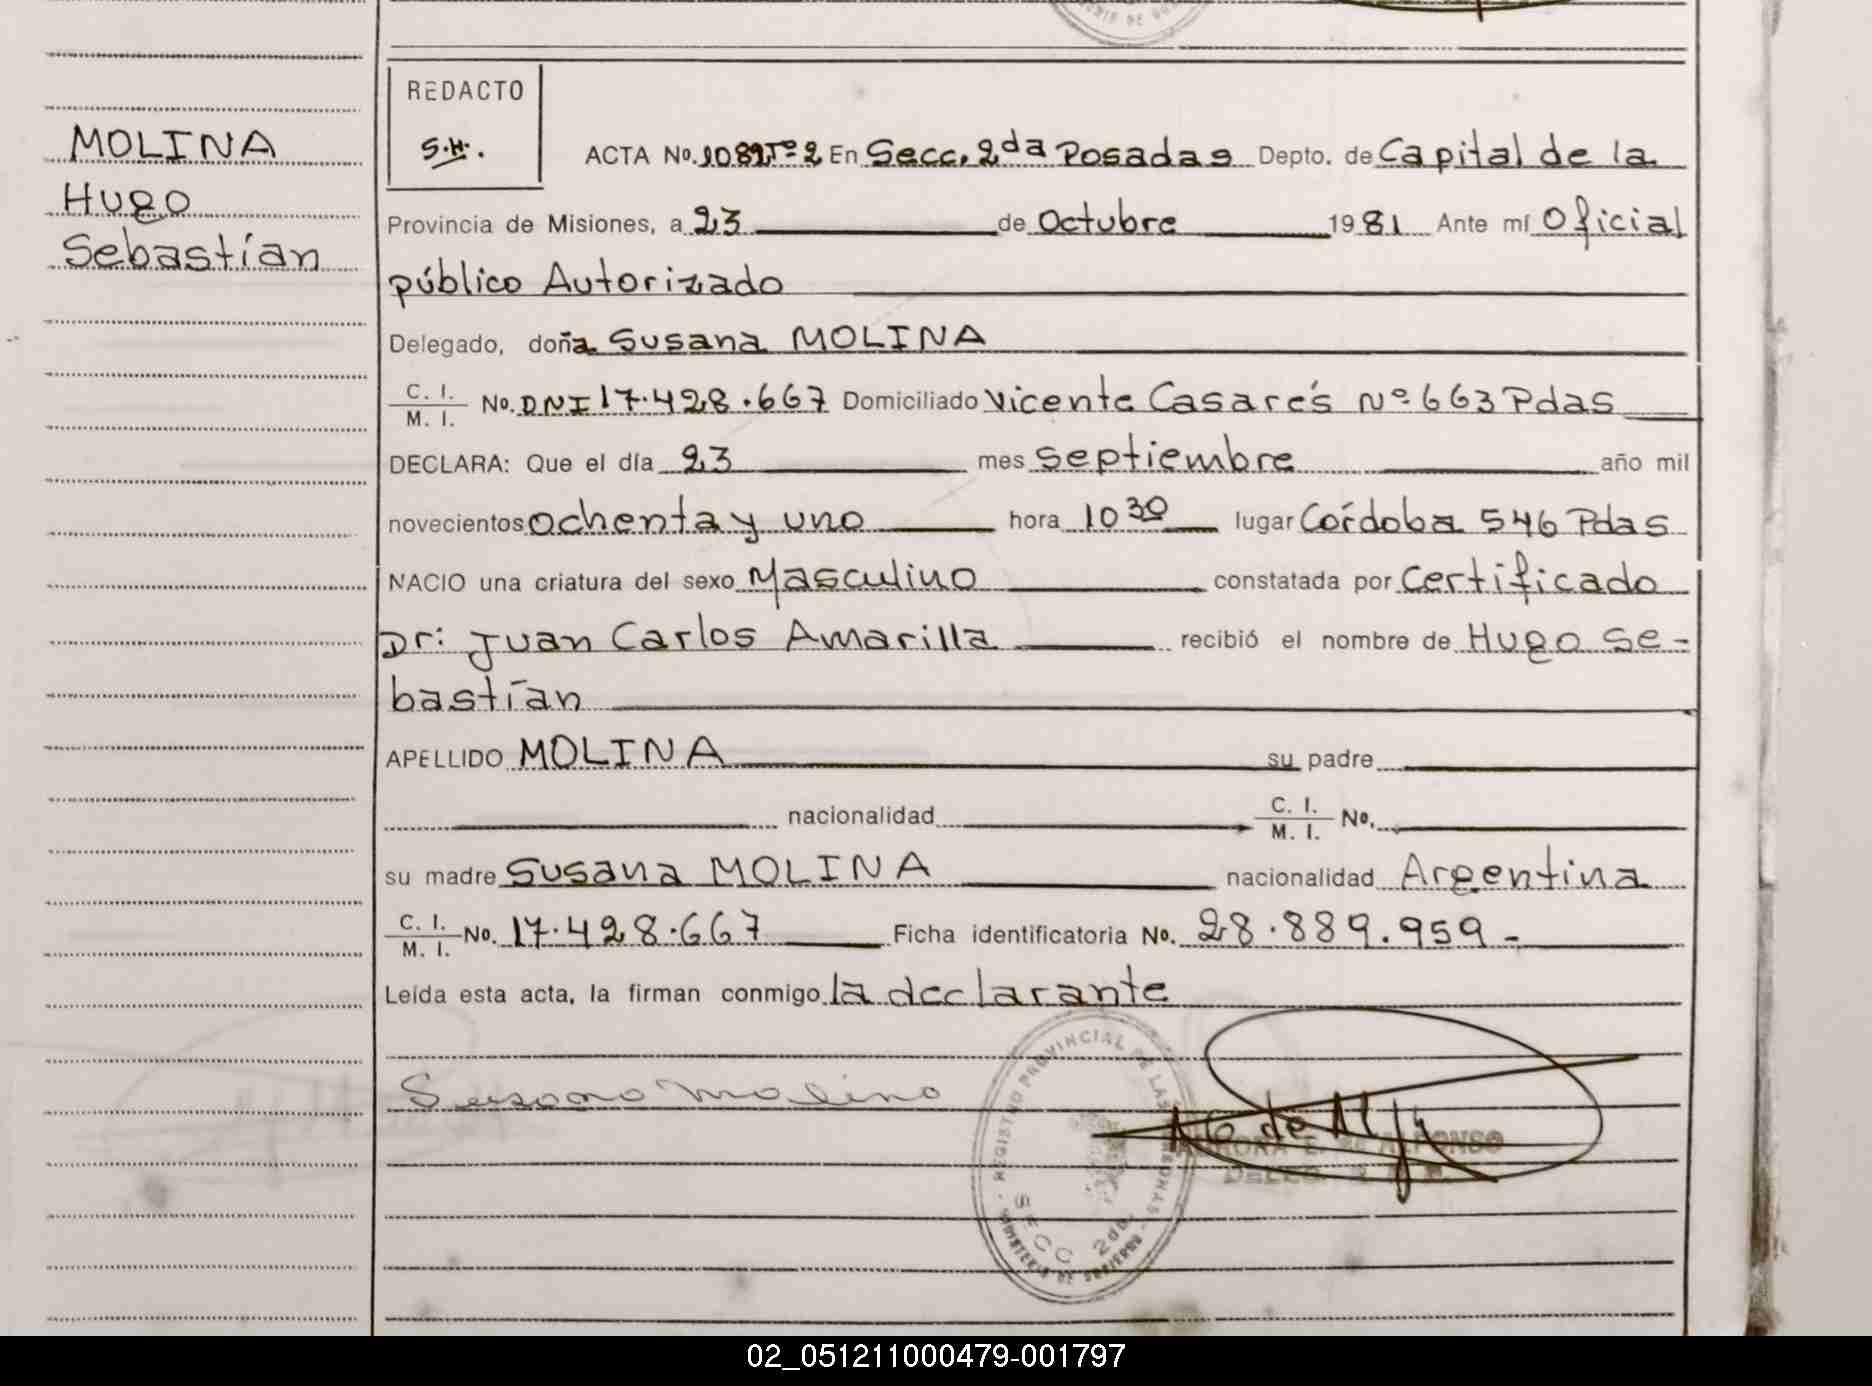 MOLINA
Hugo
Sebastían
REDACTO
S.H.
ACTA No. 1082 Tº 2 En Secc. 2da Posadas Depto. de Capital de la
Provincia de Misiones, a 23 de Octubre 1981 Ante mí Oficial
público Autorizado
Delegado, doña Susana MOLINA
C. I.
M. I. No. DNI 17.428.667 Domiciliado Vicente Casares Nº 663 Pdas
DECLARA: Que el día 23 mes septiembre año mil
novecientos ochenta y uno hora 10 30 lugar Córdoba 546 Pdas
NACIO una criatura del sexo Masculino constatada por Certificado
Dr: Juan Carlos Amarilla recibió el nombre de Hugo Se-
bastían
APELLIDO MOLINA su padre
nacionalidad C. I.
M. I. No.
su madre Susana MOLINA nacionalidad Argentina
C. I.
M. I. No. 17.428.667 Ficha identificatoria No. 28.889.959-
Leída esta acta, la firman conmigo la declarante
Susana Molina
REGISTRO PROVINCIAL DE LAS PERSONAS
SECC 2da.
MINISTERIO DE GOBIERNO
02_051211000479-001797